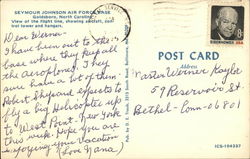 SEYMOUR JOHNSON AIR FORCE BASE
Goldsboro, North Carolina
View of the flight line, showing aircraft, control tower and hangars.
Dear Werner -
I have been out to the
base where they keep all
the aeroplanes. They
sure have a lot of them.
Robert Rhyand expects to
fly a big Helicopter up
to West Point, New York
this week. Hope you are
enjoying your vacation
Love Nana
POST CARD
Address
Master Werner Kaylor
59 Reservoir St.
Bethel - Conn - 06801
EISENHOWER USA
8c
ICS-104337